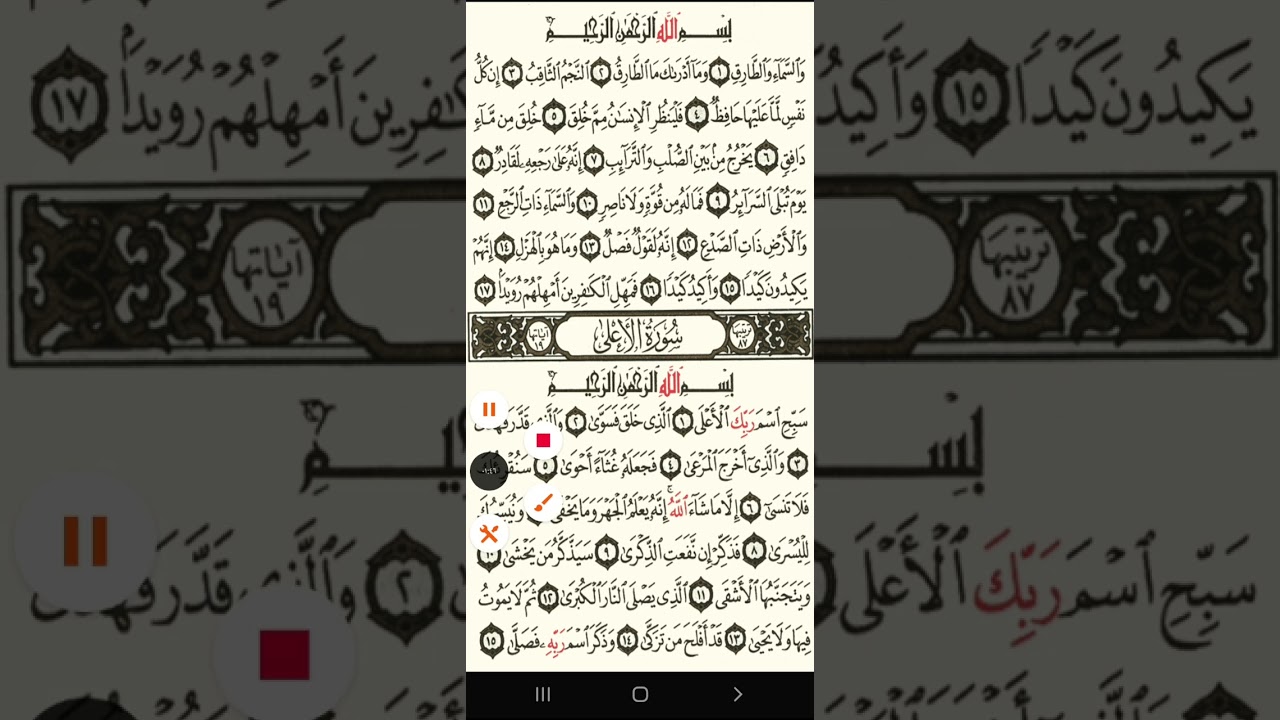 بِسْمِ ٱللَّهِ ٱلرَّحْمَٰنِ ٱلرَّحِيمِ
وَٱلسَّمَآءِ وَٱلطَّارِقِ ١ وَمَآ أَدْرَىٰكَ مَا ٱلطَّارِقُ ٢ ٱلنَّجْمُ ٱلثَّاقِبُ ٣ إِن كُلُّ
نَفْسٍ لَّمَّا عَلَيْهَا حَافِظٌ ٤ فَلْيَنظُرِ ٱلْإِنسَٰنُ مِمَّ خُلِقَ ٥ خُلِقَ مِن مَّآءٍ
دَافِقٍ ٦ يَخْرُجُ مِنۢ بَيْنِ ٱلصُّلْبِ وَٱلتَّرَآئِبِ ٧ إِنَّهُۥ عَلَىٰ رَجْعِهِۦ لَقَادِرٌ ٨
يَوْمَ تُبْلَى ٱلسَّرَآئِرُ ٩ فَمَا لَهُۥ مِن قُوَّةٍ وَلَا نَاصِرٍ ١٠ وَٱلسَّمَآءِ ذَاتِ ٱلرَّجْعِ ١١
وَٱلْأَرْضِ ذَاتِ ٱلصَّدْعِ ١٢ إِنَّهُۥ لَقَوْلٌ فَصْلٌ ١٣ وَمَا هُوَ بِٱلْهَزْلِ ١٤ إِنَّهُمْ
يَكِيدُونَ كَيْدًا ١٥ وَأَكِيدُ كَيْدًا ١٦ فَمَهِّلِ ٱلْكَٰفِرِينَ أَمْهِلْهُمْ رُوَيْدًۢا ١٧
ترتيبها ٨٧ سُورَةُ الأَعْلَى آياتها ١٩
بِسْمِ ٱللَّهِ ٱلرَّحْمَٰنِ ٱلرَّحِيمِ
سَبِّحِ ٱسْمَ رَبِّكَ ٱلْأَعْلَى ١ ٱلَّذِى خَلَقَ فَسَوَّىٰ ٢ وَٱلَّذِى قَدَّرَ فَهَدَىٰ
٣ وَٱلَّذِىٓ أَخْرَجَ ٱلْمَرْعَىٰ ٤ فَجَعَلَهُۥ غُثَآءً أَحْوَىٰ ٥ سَنُقْرِئُكَ
فَلَا تَنسَىٰٓ ٦ إِلَّا مَا شَآءَ ٱللَّهُ ۚ إِنَّهُۥ يَعْلَمُ ٱلْجَهْرَ وَمَا يَخْفَىٰ وَنُيَسِّرُكَ
لِلْيُسْرَىٰ ٨ فَذَكِّرْ إِن نَّفَعَتِ ٱلذِّكْرَىٰ ٩ سَيَذَّكَّرُ مَن يَخْشَىٰ ١٠
وَيَتَجَنَّبُهَا ٱلْأَشْقَى ١١ ٱلَّذِى يَصْلَى ٱلنَّارَ ٱلْكُبْرَىٰ ١٢ ثُمَّ لَا يَمُوتُ
فِيهَا وَلَا يَحْيَىٰ ١٣ قَدْ أَفْلَحَ مَن تَزَكَّىٰ ١٤ وَذَكَرَ ٱسْمَ رَبِّهِۦ فَصَلَّىٰ ١٥